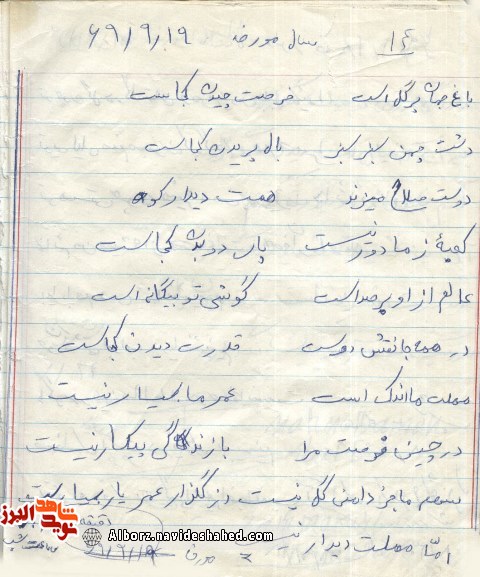 ۱۴ سال مورخه ۶۹/۹/۱۹
باغ جهان پر گل است فرصت چیدن کجاست
دشت چمن سبز سبز بال پریدن کجاست
دوست صلا میزند همت دیدار کو
کعبهٔ ز ما دور نیست پای دویدن کجاست
عالم از او پر صداست گوش تو بیگانه است
در همه جا نقش دوست قدرت دیدن کجاست
مهلت ما اندک است عمر ما بسیار نیست
در چنین فرصت مرا با زندگی پیکار نیست
سهم ما جز دامنی گل نیست در گلزار عمر یار بسیار است
امّا مهلت دیدار نیست مورخه
شاهد
نوید
البرز
Alborz.navideshahed.com